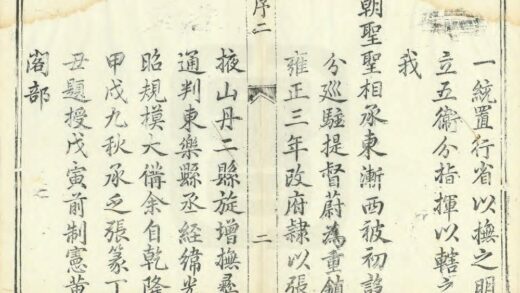 一統置行省以撫之明
立五衞分指揮以轄之
我
朝聖聖相承東漸西被初
分巡駐提督蔚為重鎮
雍正三年改府隸以張
序二
二
掖山丹二縣旋增撫彝
通判東樂縣丞經緯光
昭規模大備余自乾隆
甲戌九秋承乏張篆丁
丑題授戊寅前制憲黄
閣部